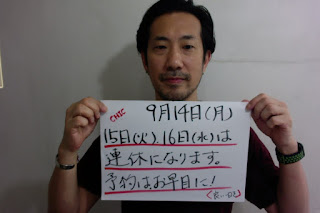 CHIC
9月14日(月)
15日(火)、16日(水)は
連休になります。
予約はお早目に!